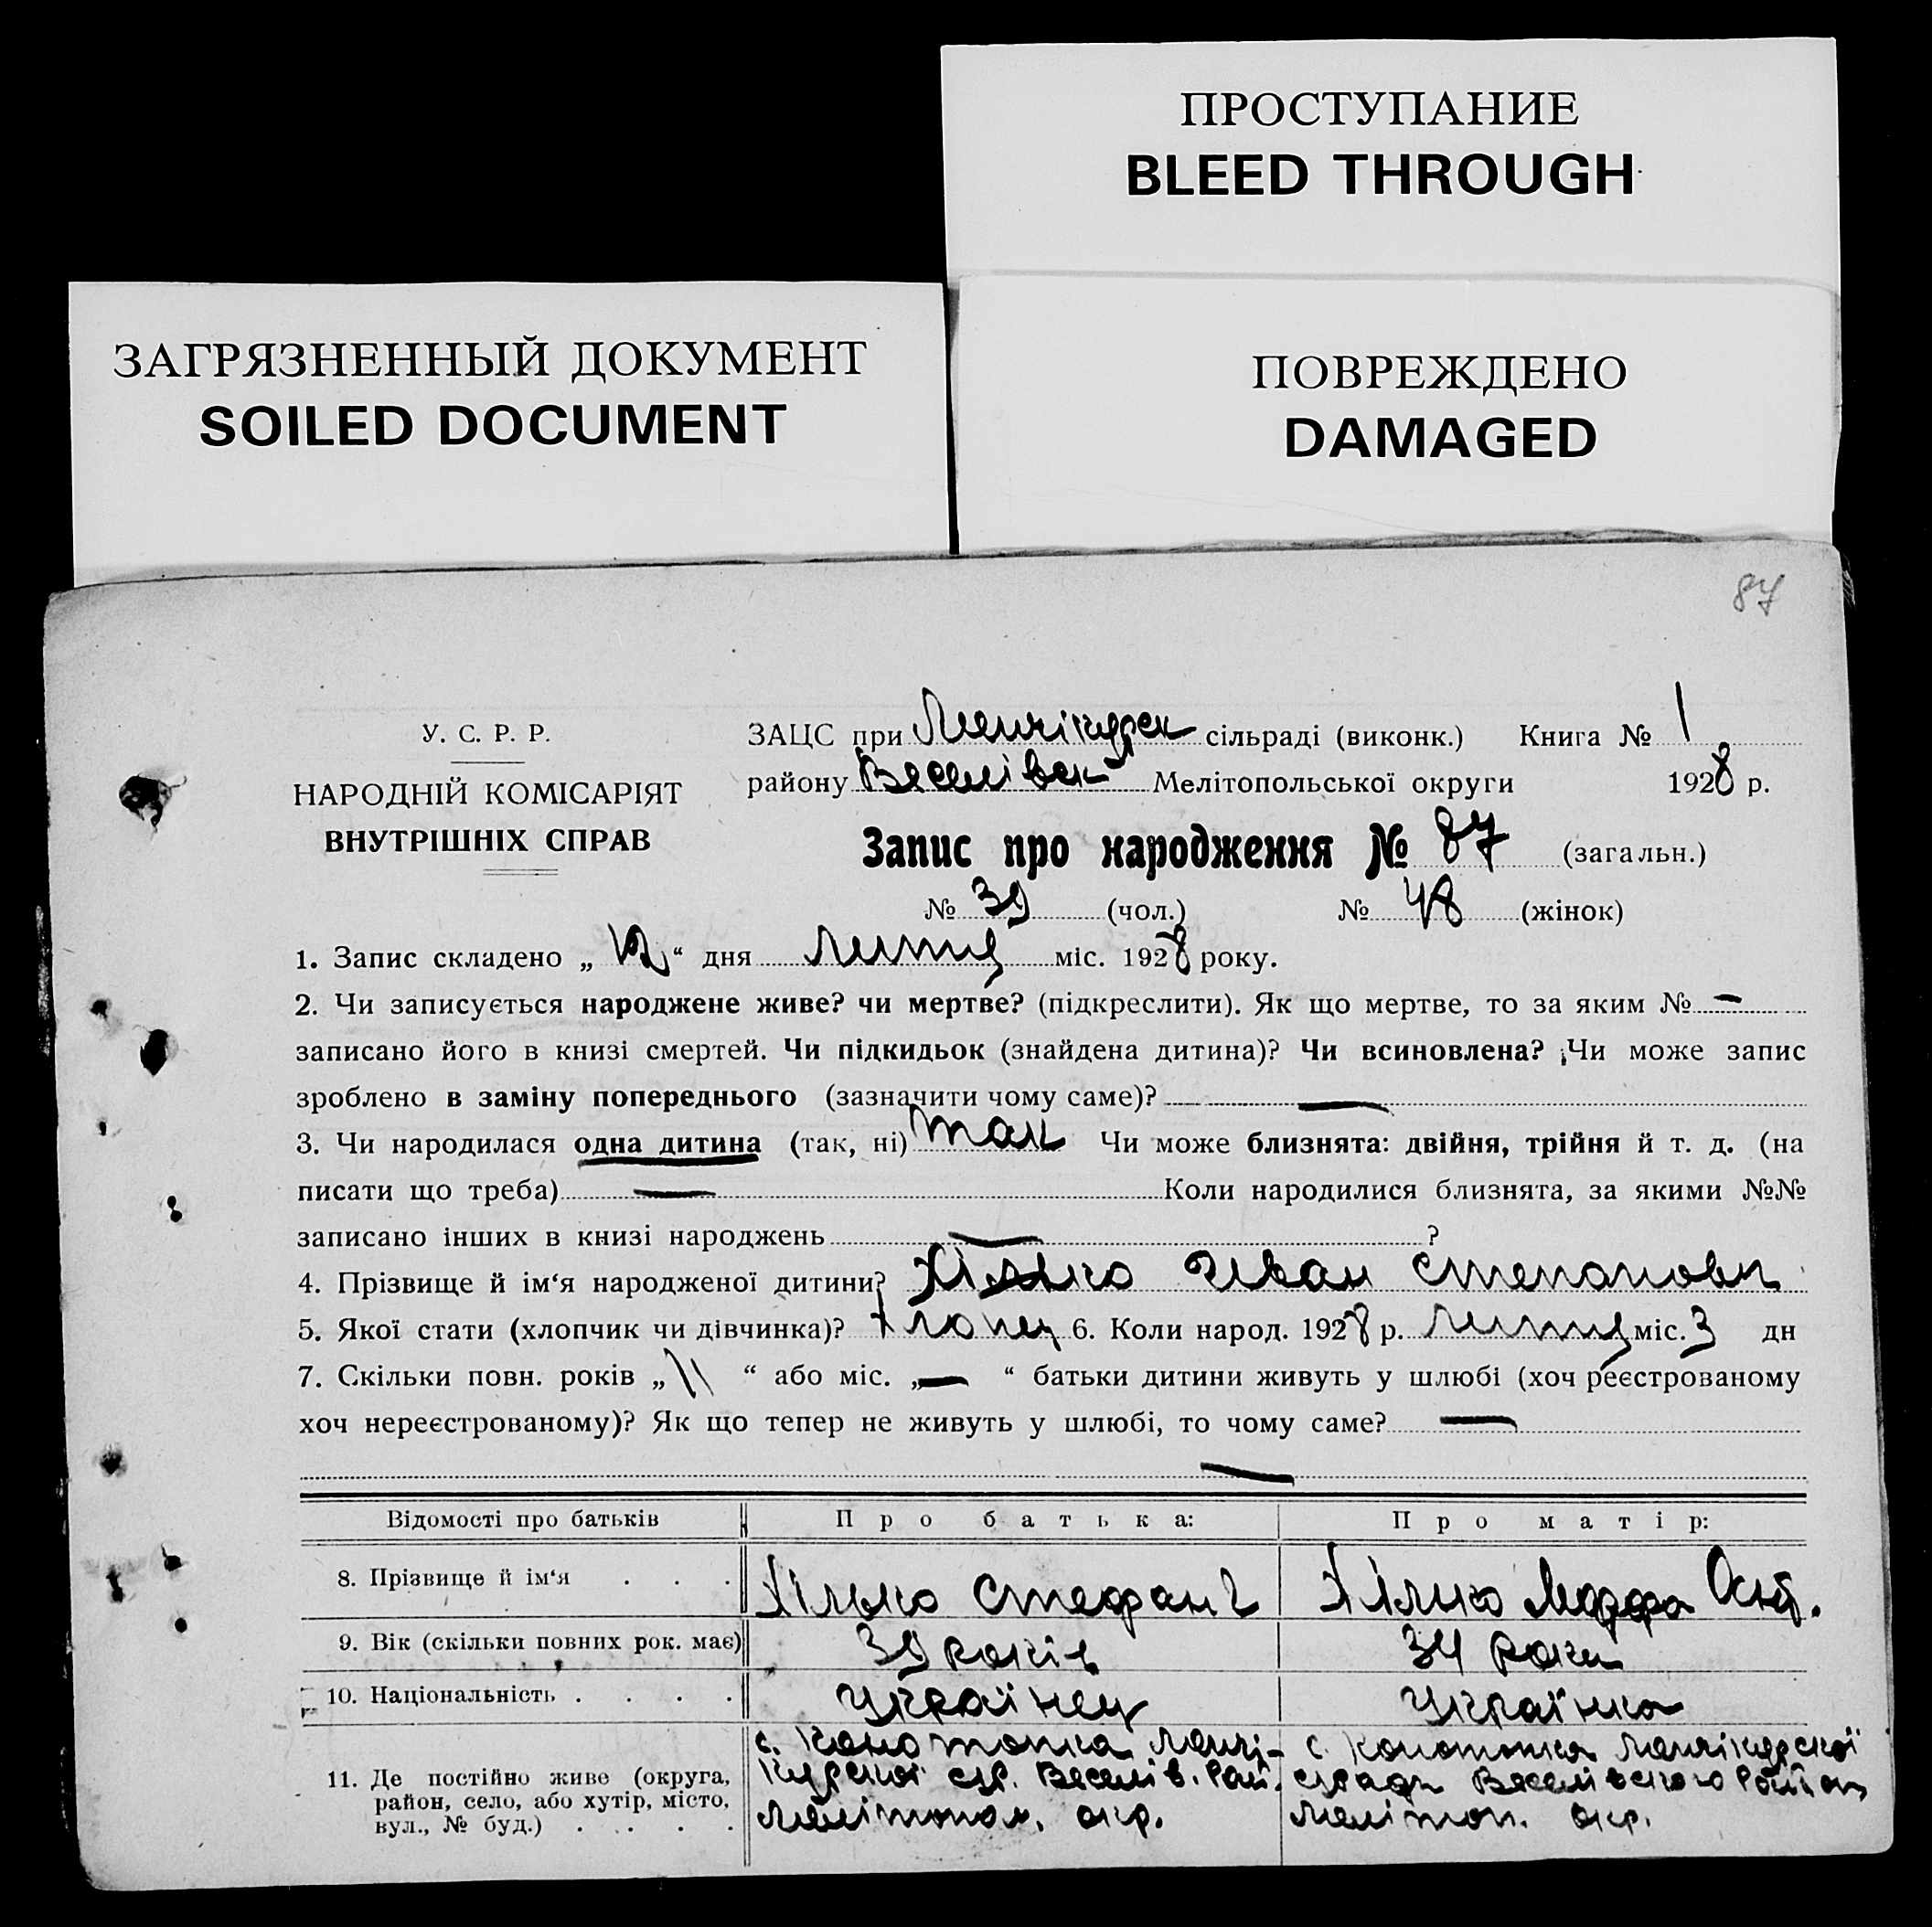 ПРОСТУПАНИЕ
BLEED THROUGH
ЗАГРЯЗНЕННЫЙ ДОКУМЕНТ
SOILED DOCUMENT
ПОВРЕЖДЕНО
DAMAGED
87
У. С. Р. Р.
НАРОДНІЙ КОМІСАРІЯТ
ВНУТРІШНІХ СПРАВ
ЗАЦС при сільраді (виконк.) Книга № 1
району Веселівськ Мелітопольської округи 1928 р.
Запис про народження № 87 (загальн.)
№ 39 (чол.) № 48 (жінок)
1. Запис складено „ 12 “ дня місс. 1928 року.
2. Чи записується народжене живе? чи мертве? (підкреслити). Як що мертве, то за яким № —
записано його в книзі смертей. Чи підкидьок (знайдена дитина)? Чи всиновлена? Чи може запис
зроблено в заміну попереднього (зазначити чому саме)? —
3. Чи народилася одна дитина (так, ні) так Чи може близнята: двійня, трійня й т. д. (на
писати що треба) — Коли народилися близнята, за якими №№
записано інших в книзі народжень — ?
4. Прізвище й ім‘я народженої дитини? Хілько Иван Степанови
5. Якої стати (хлопчик чи дівчинка)? хлопец 6. Коли народ. 1928 р. міс. 3 дн
7. Скільки повн. років „ 11 “ або міс. „ — “ батьки дитини живуть у шлюбі (хоч реєстрованому
хоч нереєстрованому)? Як що тепер не живуть у шлюбі, то чому саме? —
—
Відомості про батьків Про батька: Про матір:
8. Прізвище й ім‘я . . . Хілько Стефан Г Хілько Ост.
9. Вік (скільки повних рок. має) 39 років 34 роки
10. Національність . . . . Українец Українка
11. Де постійно живе (округа,
район, село, або хутір, місто,
вул., № буд.) . . . .
с. Конотопка Манчі-
курскоі с/р. Веселів. Рай.
Мелітопол. окр.
с. Конотопка Манчікурскоі
с/ради Веселівского Району
Меліпоп. окр.